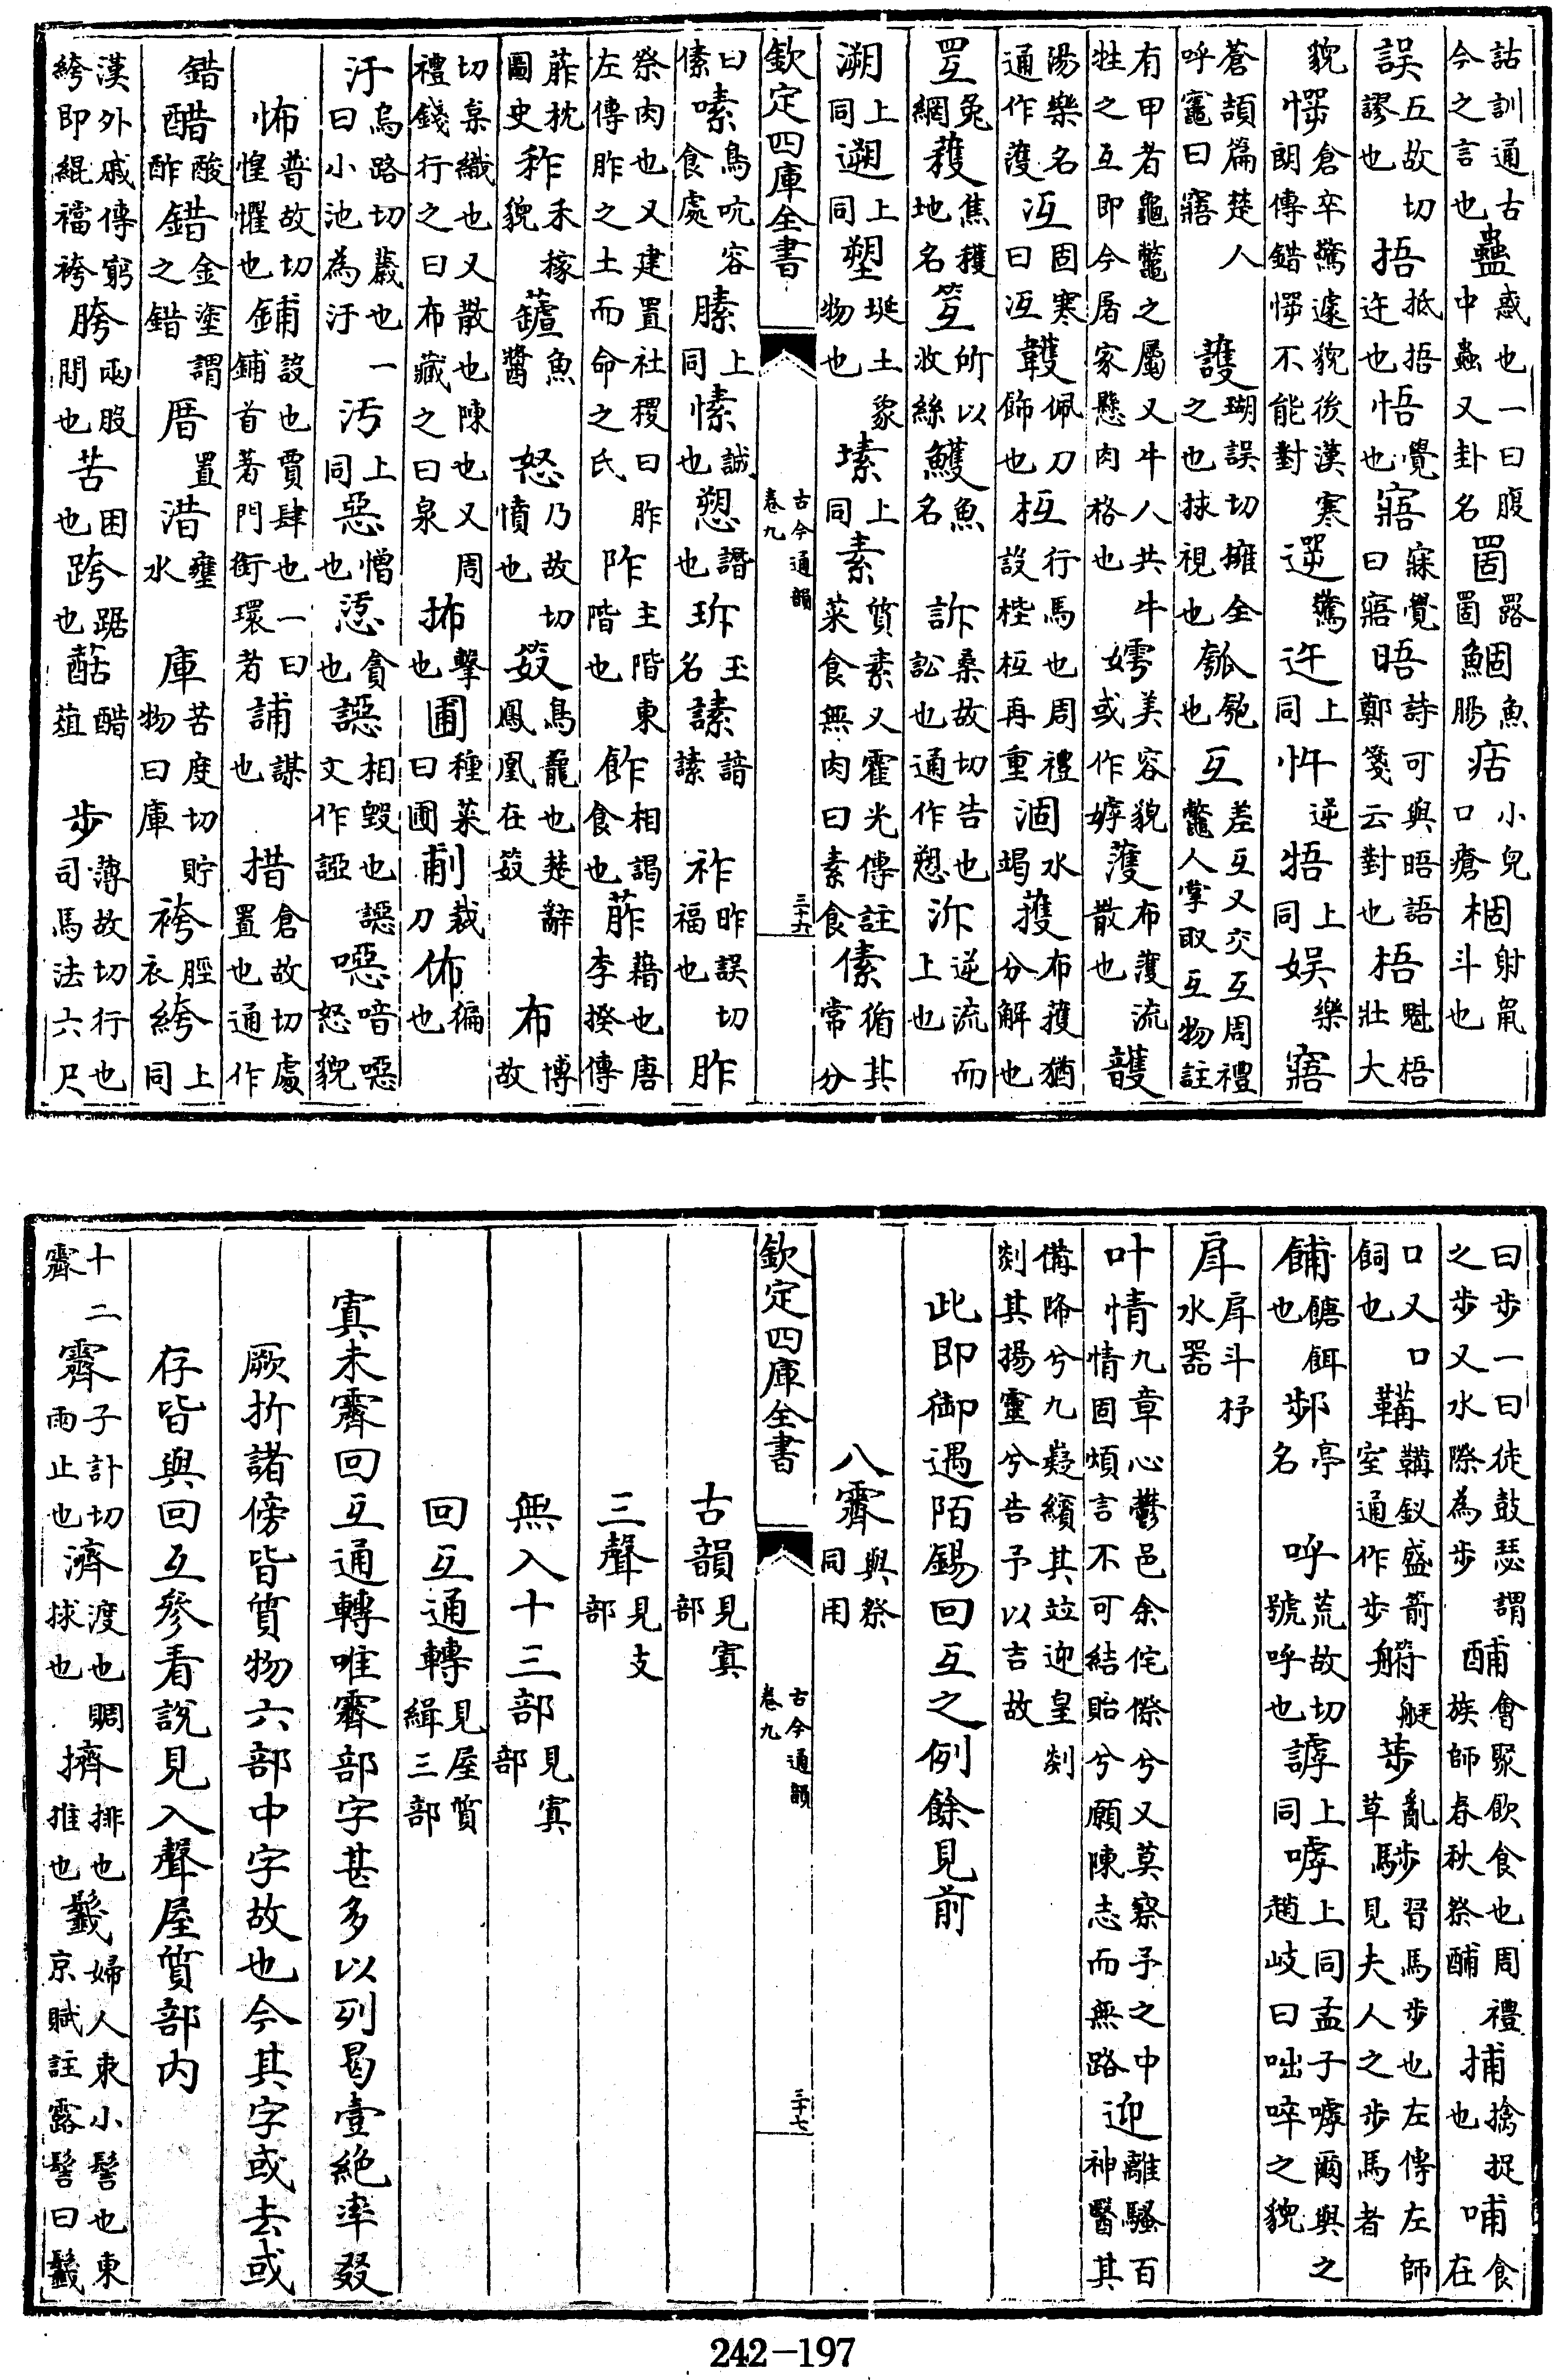 詁訓通古今之言也蠱惑也一曰腹中蟲又卦名鯝魚腸小兒口瘡棝射鼠斗也
誤五故切謬也捂抵捂迕也悟覺也寤寐覺曰寤晤詩可與晤語鄭箋云對也梧魁梧壯大
貌愕倉卒驚遽貌後漢寒朗傳錯愕不能對遻驚迕上同忤逆牾上同娛樂寤
蒼頡篇楚人呼竈曰寤護瑚誤切擁全之也救視也瓠匏也互差互又交互周禮鼈人掌取互物註
有甲者龜鼈之屬又牛人共牛牲之互即今屠家懸肉格也嫮美容貌或作嫭濩布濩流散也頀
陽樂名通作濩冱固寒曰冱韄佩刀飾也枑行馬也周禮設梐枑再重涸水竭擭布擭猶分解也
兔網穫焦穫地名所以收絲鱯魚名訴桑故切告也訟也通作愬泝逆流而上也
溯上同遡上同塑埏土象物也塐上同素質素又霍光傳註菜食無肉曰素食傃循其常分
欽定四庫全書 古今通韻卷九 三十六
曰傃嗉鳥吭容食處膆上同愫誠也愬譖也玉名諳祚昨誤切福也胙
祭肉也又建置社稷曰胙左傳胙之土而命之氏阼主階東階也飵相謁食也葄藉也唐李揆傳
葄枕圖史秨禾稼貌魚醬怒乃故切憤也笯鳥籠也楚辭鳳凰在笯布博故
切枲織也又散也陳也又周禮錢行之曰布藏之曰泉抪擊也圃種菜曰圃裁刀佈徧也
汙烏路切濊也一曰小池為汙汚上同惡憎也貪也相毀也文作諲噁喑噁怒貌
怖普故切惶懼也鋪設也賈肆也一曰鋪首著門銜環者誧謀也措倉故切處置也通作
錯醋酸酢錯金塗謂之錯厝置浩壅水庫苦度切貯物曰庫袴脛衣絝上同
漢外戚傳窮絝即緄襠袴胯兩股間也苦困也跨踞也醋葅步薄故切行也司馬法六尺
曰步一曰徒鼓瑟謂之步又水際為步酺會聚飲食也周禮族師春秋祭酺捕擒捉也哺食在
口又口飼也鞴鞴釵盛箭室通作步艇亂草駊習馬步也左傳左師見夫人之步馬者
餔餹餌也亭名呼荒故切號呼也謼上同嘑上同孟子嘑爾與之趙岐曰咄啐之貌
戽戽斗抒水器
叶情九章心鬱邑余侘傺兮又莫察予之中情固煩言不可結貽兮願陳志而無路迎離騷百神翳其
備降兮九嶷繽其竝迎皇剡剡其揚靈兮告予以吉故
此即御遇陌錫回互之例餘見前
八霽與祭同用
欽定四庫全書 古今通韻卷九 三十七
古韻見寘部
三聲見支部
無入十三部見寘部
回互通轉見屋質緝三部
寘未霽回互通轉唯霽部字甚多以列曷壹絶率叕
厥折諸傍皆質物六部中字故也今其字或去或
存皆與回互參看說見入聲屋質部內
十二霽霽子計切雨止也濟渡也賙救也擠排也推也䰖婦人束小髻也東京賦註露髻曰䰖
242—197